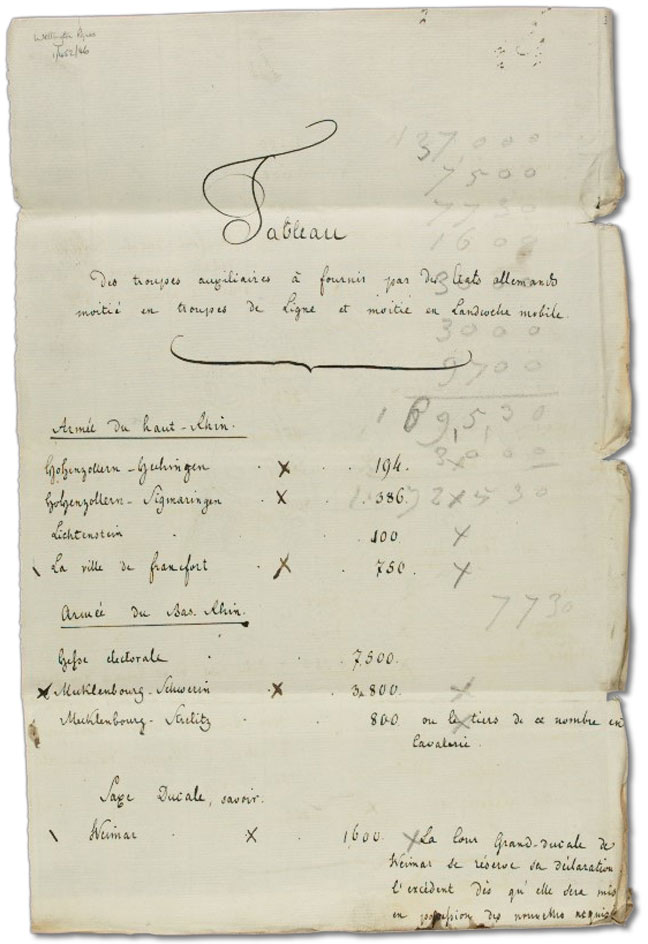 Wellington Papers
1/452/46
137,000
7500
7730
1608
3000
3000
9700
169,530
3000
172530
7730
Tableau
des troupes auxiliaires à fournir par des Etats allemands
moitié en troupes de Ligne et moitié en Landwehr mobile.
Armée du haut-Rhin.
Hohenzollern-Hechingen . x . . 194.
Hohenzollern-Sigmaringen x . 386.
Lichtenstein . . 100 x
\ La ville de francfort x . 750. x
Armée du Bas-Rhin.
Hesse electorale . . 7,500.
x Mecklenbourg-Schwerin . x . 3,800. x
Mecklenbourg-Strelitz . . 800 ou le tiers de ce nombre en
Cavalerie.
Saxe Ducale, savoir.
\ Weimar . x . 1600. x La Cour Grand-ducale de
Weimar se réserve sa déclaration
l'excédent dès qu'elle sera mis
en possession des nouvelles acquisi